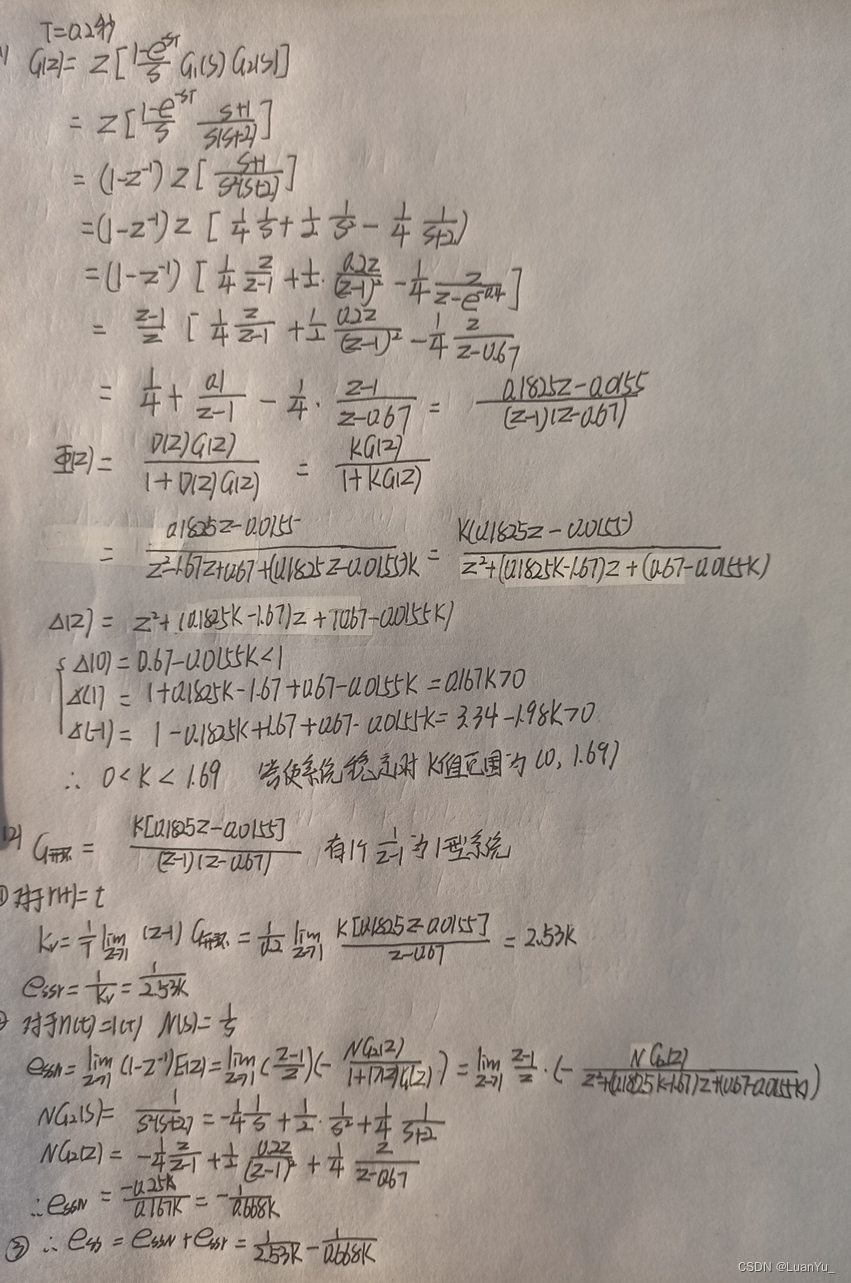 T=0.2秒
1) G(z)= Z[\frac{1-e^{-sT}}{s} G_1(s) G_2(s)]
= Z[\frac{1-e^{-sT}}{s} \frac{s+1}{s(s+2)}]
= (1-z^{-1}) Z[\frac{s+1}{s^2(s+2)}]
=(1-z^{-1}) Z [\frac{1}{4} \frac{1}{s} + \frac{1}{2} \frac{1}{s^2} - \frac{1}{4} \frac{1}{s+2})
=(1-z^{-1}) [\frac{1}{4} \frac{z}{z-1} + \frac{1}{2}· \frac{0.2z}{(z-1)^2} - \frac{1}{4} \frac{z}{z-e^{-0.4}}]
= \frac{z-1}{z} [\frac{1}{4} \frac{z}{z-1} + \frac{1}{2} \frac{0.2z}{(z-1)^2} - \frac{1}{4} \frac{z}{z-0.67}
= \frac{1}{4} + \frac{0.1}{z-1} - \frac{1}{4}· \frac{z-1}{z-0.67} = \frac{0.1825z-0.0155}{(z-1)(z-0.67)}
Φ(z)= \frac{D(z)G(z)}{1+D(z)G(z)} = \frac{KG(z)}{1+KG(z)}
= \frac{0.1825z-0.0155}{z^2-1.67z+0.67+(0.1825z-0.0155)K} = \frac{K(0.1825z-0.0155)}{z^2+(0.1825K-1.67)z+(0.67-0.0155K)}
Δ(z)= z^2+(0.1825K-1.67)z+(0.67-0.0155K)
{ Δ(0)=0.67-0.0155K<1
Δ(1) = 1+0.1825K-1.67+0.67-0.0155K=0.167K>0
Δ(-1)= 1-0.1825K+1.67+0.67-0.0155K=3.34-1.98K>0
∴ 0<K<1.69 当使系统稳定时 K值范围为(0, 1.69)
(2) G_{开环}= \frac{K[0.1825z-0.0155]}{(z-1)(z-0.67)} 有1个\frac{1}{z-1}为1型系统
① 对于r(t)=t
K_v=\frac{1}{T} \lim_{z→1} (z-1) G_{开环}=\frac{1}{0.2} \lim_{z→1} \frac{K[0.1825z-0.0155]}{z-0.67} = 2.53K
e_{ssr}=\frac{1}{K_v}=\frac{1}{2.53K}
② 对于n(t)=1(t) N(s)=\frac{1}{s}
e_{ssn}=\lim_{z→1} (1-z^{-1})E(z)=\lim_{z→1} (\frac{z-1}{z})(-\frac{NG_2(z)}{1+D(z)G(z)})=\lim_{z→1} \frac{z-1}{z}·(-\frac{NG_2(z)}{z^2+(0.1825K-1.67)z+(0.67-0.0155K)})
NG_2(s)= \frac{1}{s^2(s+2)} = -\frac{1}{4} \frac{1}{s} + \frac{1}{2}· \frac{1}{s^2} + \frac{1}{4} \frac{1}{s+2}
NG_2(z)= -\frac{1}{4} \frac{z}{z-1} + \frac{1}{2} \frac{0.2z}{(z-1)^2} + \frac{1}{4} \frac{z}{z-0.67}
∴ e_{ssN} = \frac{-0.25K}{0.167K} = -\frac{1}{0.668K}
③ ∴ e_{ss} = e_{ssN}+e_{ssr} = \frac{1}{2.53K} - \frac{1}{0.668K}
CSDN @LuanYu_